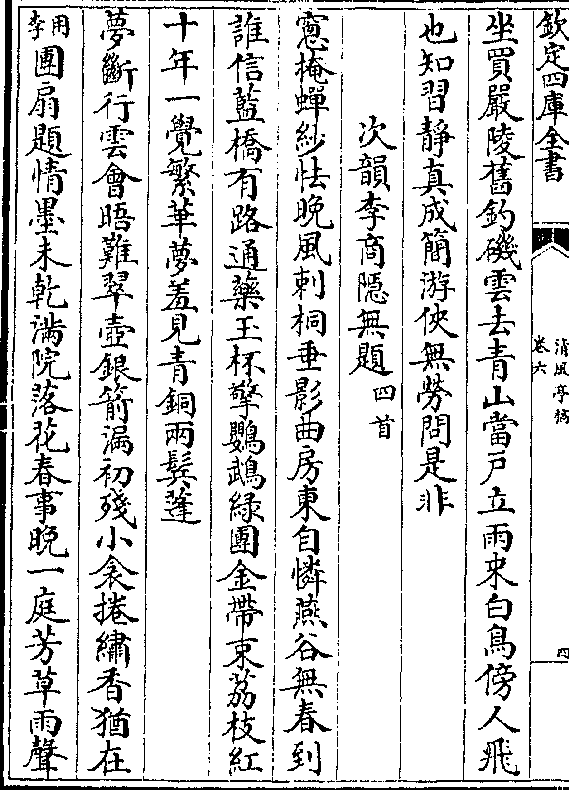 欽定四庫全書
清風亭稿
卷六
四
坐買嚴陵舊釣磯雲去青山當戶立雨来白鳥傍人飛
也知習静真成簡游俠無勞問是非
次韻李商隱無題四首
窻掩蟬紗怯晚風刺桐垂影曲房東自憐燕谷無春到
誰信藍橋有路通藥玉杯擎鸚鵡緑團金帶束荔枝紅
十年一覺繁華夢羞見青銅兩鬢蓬
夢斷行雲會晤難翠壺銀箭漏初殘小衾捲繡香猶在
團扇題情墨未乾滿院落花春事晚一庭芳草雨聲
用李